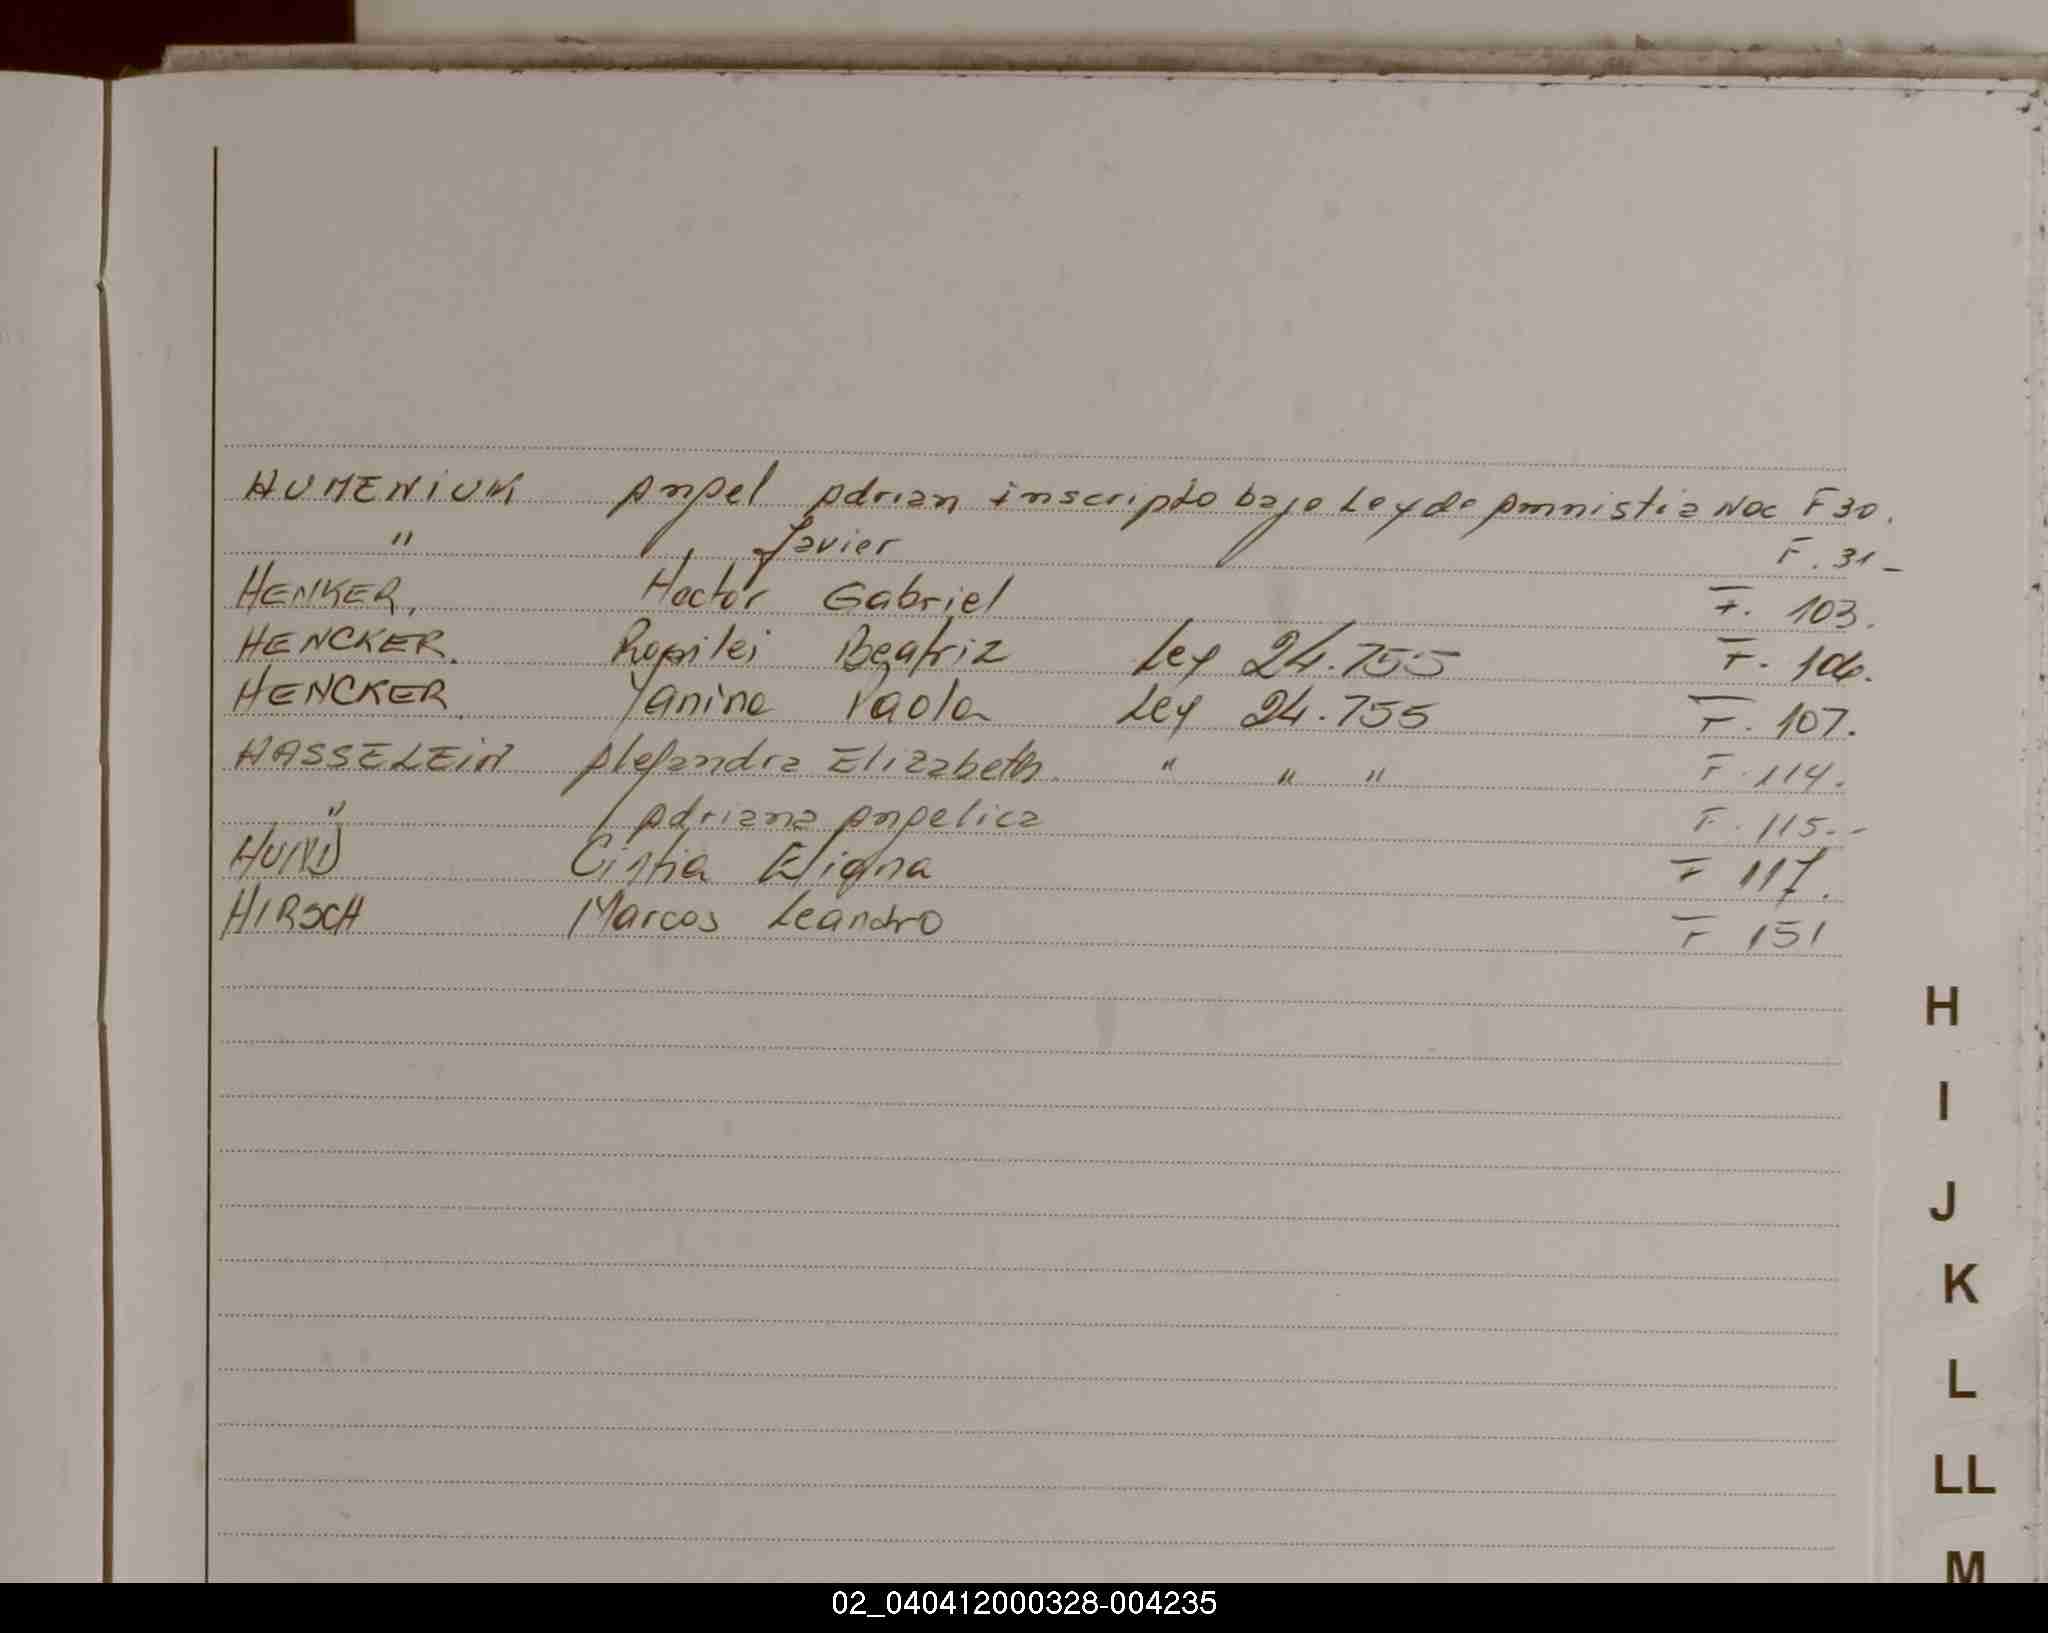 HUMENIUK Angel Adrian inscripto bajo Ley de Amnistia Nac F 30.
" " Javier F. 31-
HENKER, Hector Gabriel F. 103.
HENCKER. Beatriz Ley 24.755 F. 106.
HENCKER Yanina Paola Ley 24.755 F. 107.
HASSELEIN Alejandra Elizabeth. " " " F. 114.
" Adriana Angelica F. 115.-
Cintia Eliana F 117.
HIRSCH Marcos Leandro F 151
H
I
J
K
L
LL
M
02_040412000328-004235